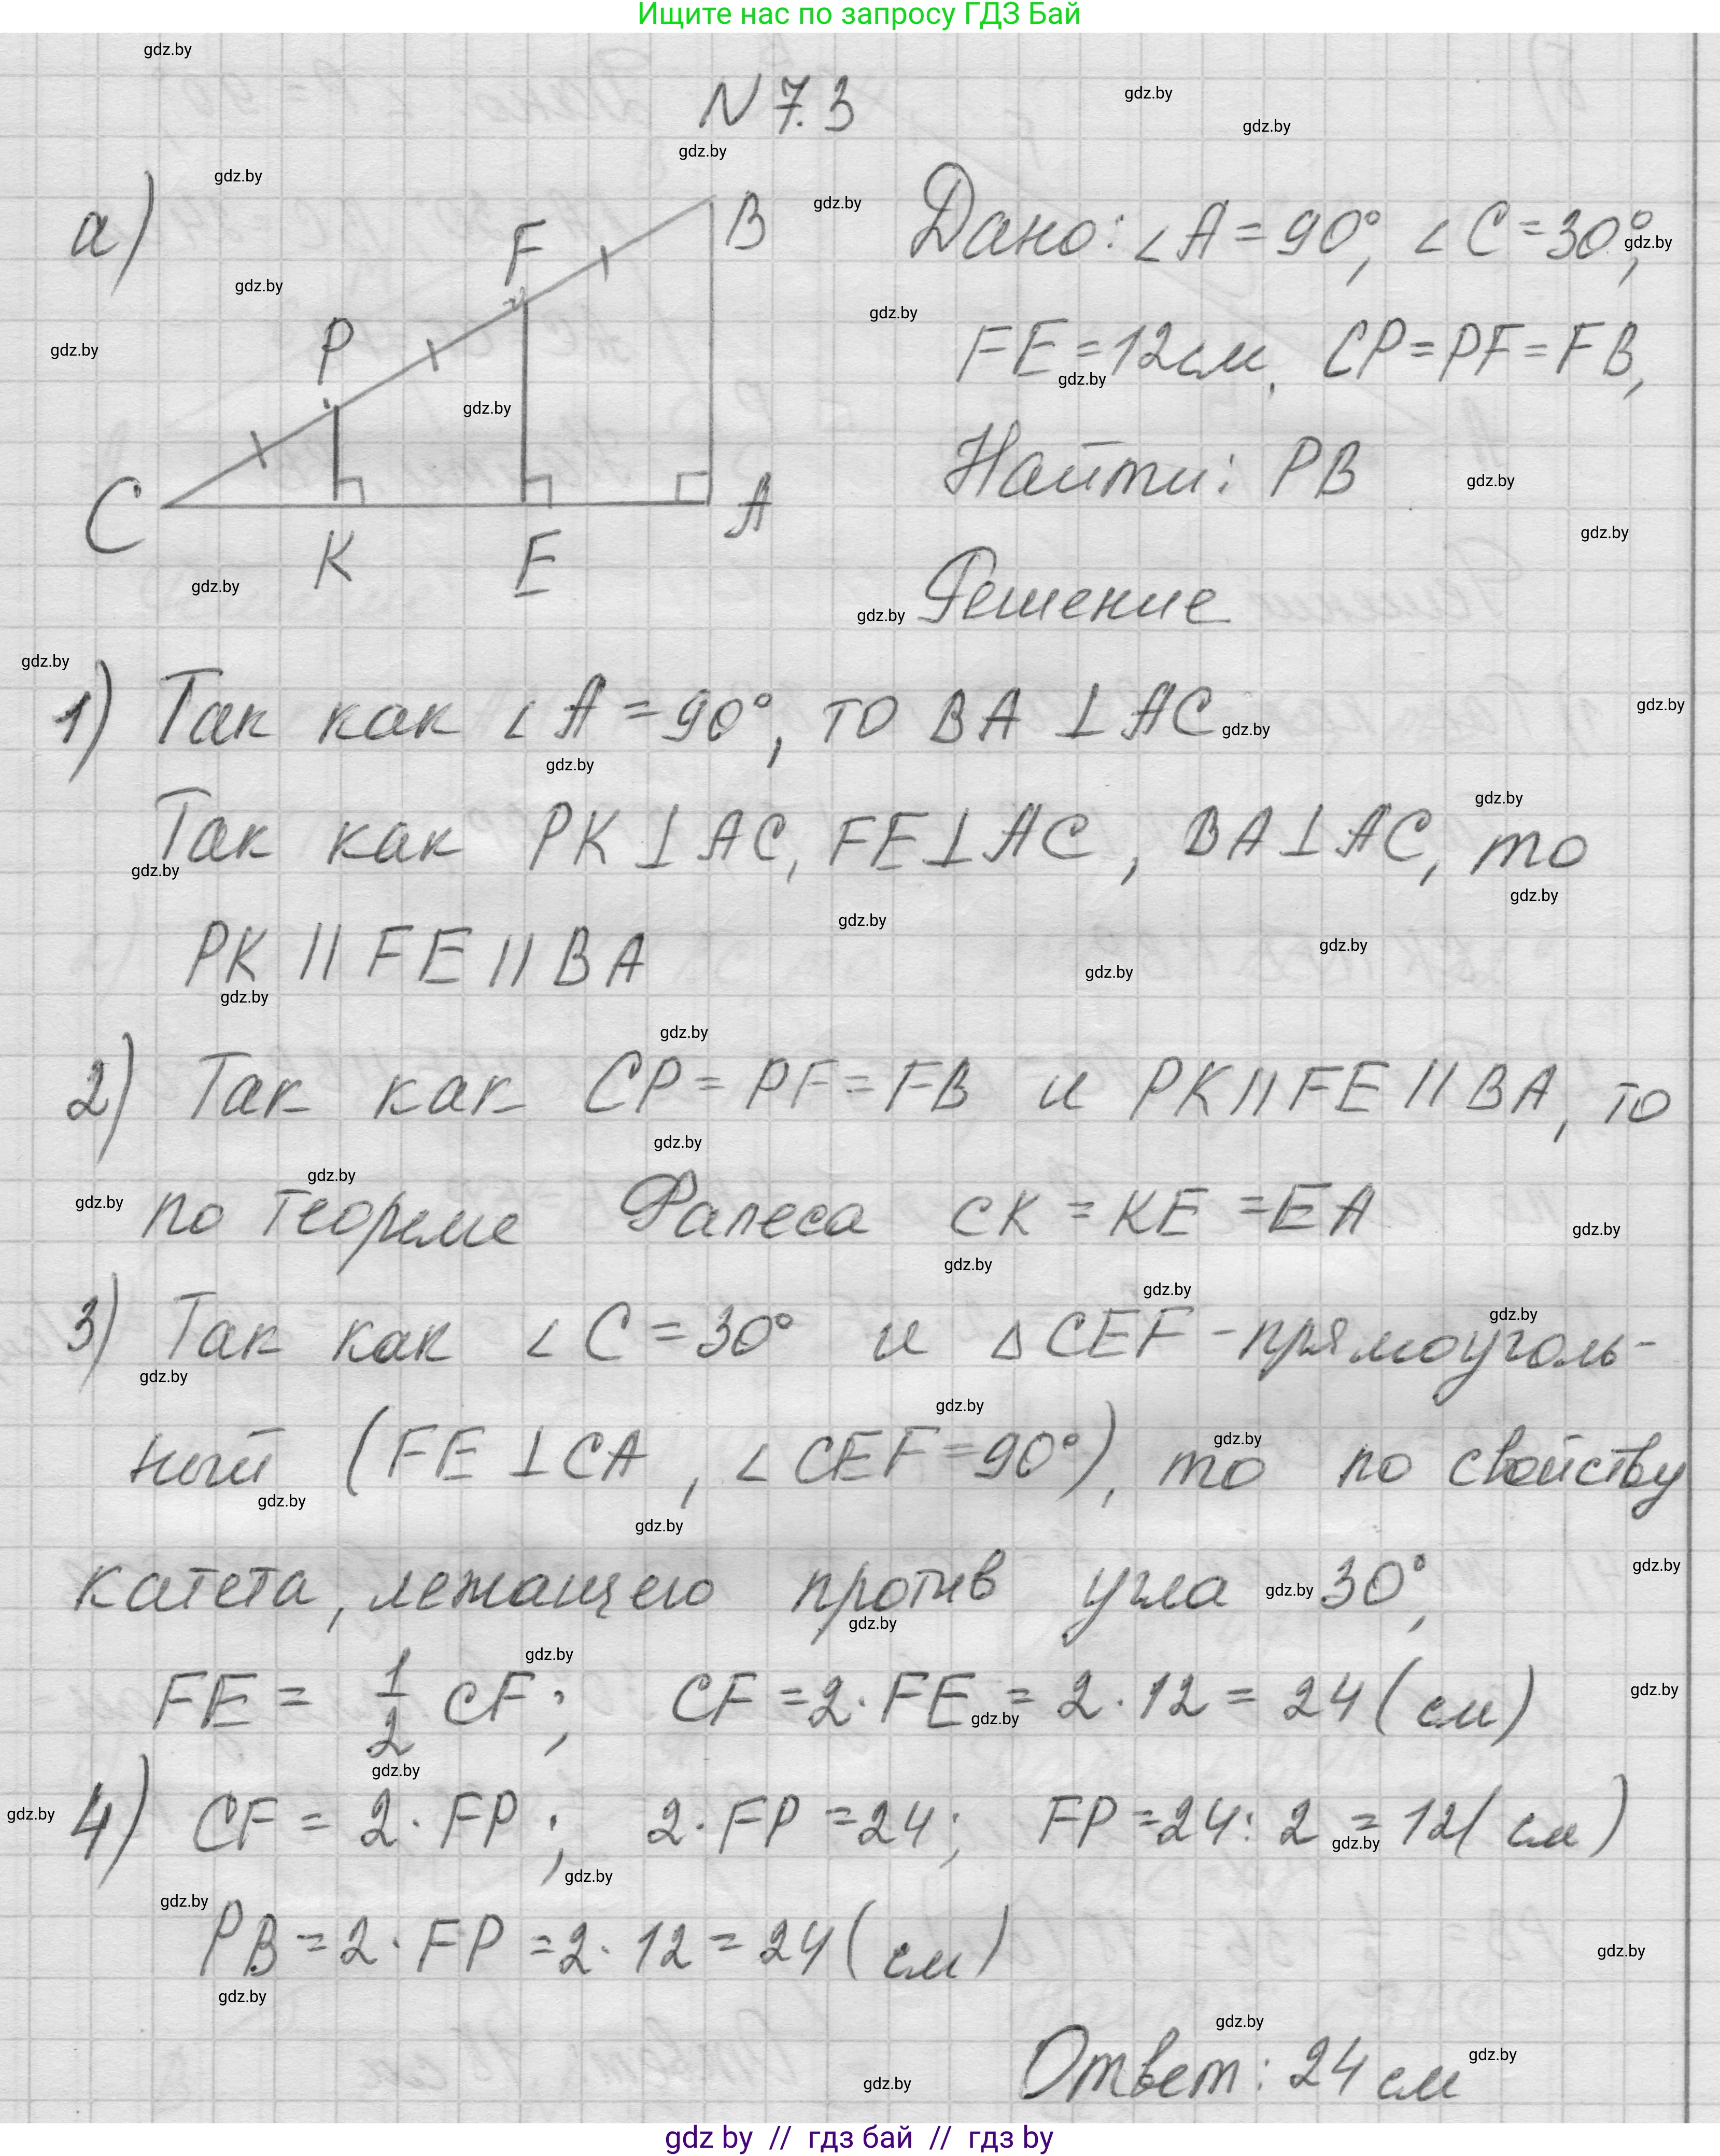 Ищите нас по запросу ГДЗ Бай
N 7.3
а)
B
F
P
C
K
E
A
Дано: ∠A = 90°, ∠C = 30°,
FE = 12 см, CP = PF = FB,
Найти: PB
Решение
1) Так как ∠A = 90°, то BA ⊥ AC
Так как PK ⊥ AC, FE ⊥ AC, BA ⊥ AC, то
PK || FE || BA
2) Так как CP = PF = FB и PK || FE || BA, то
по теореме Фалеса CK = KE = EA
3) Так как ∠C = 30° и △CEF - прямоуголь-
ный (FE ⊥ CA, ∠CEF = 90°), то по свойству
катета, лежащего против угла 30°,
FE = 1/2 CF; CF = 2 · FE = 2 · 12 = 24 (см)
4) CF = 2 · FP; 2 · FP = 24; FP = 24 : 2 = 12 (см)
PB = 2 · FP = 2 · 12 = 24 (см)
Ответ: 24 см
gdz by // гдз бай // гдз by